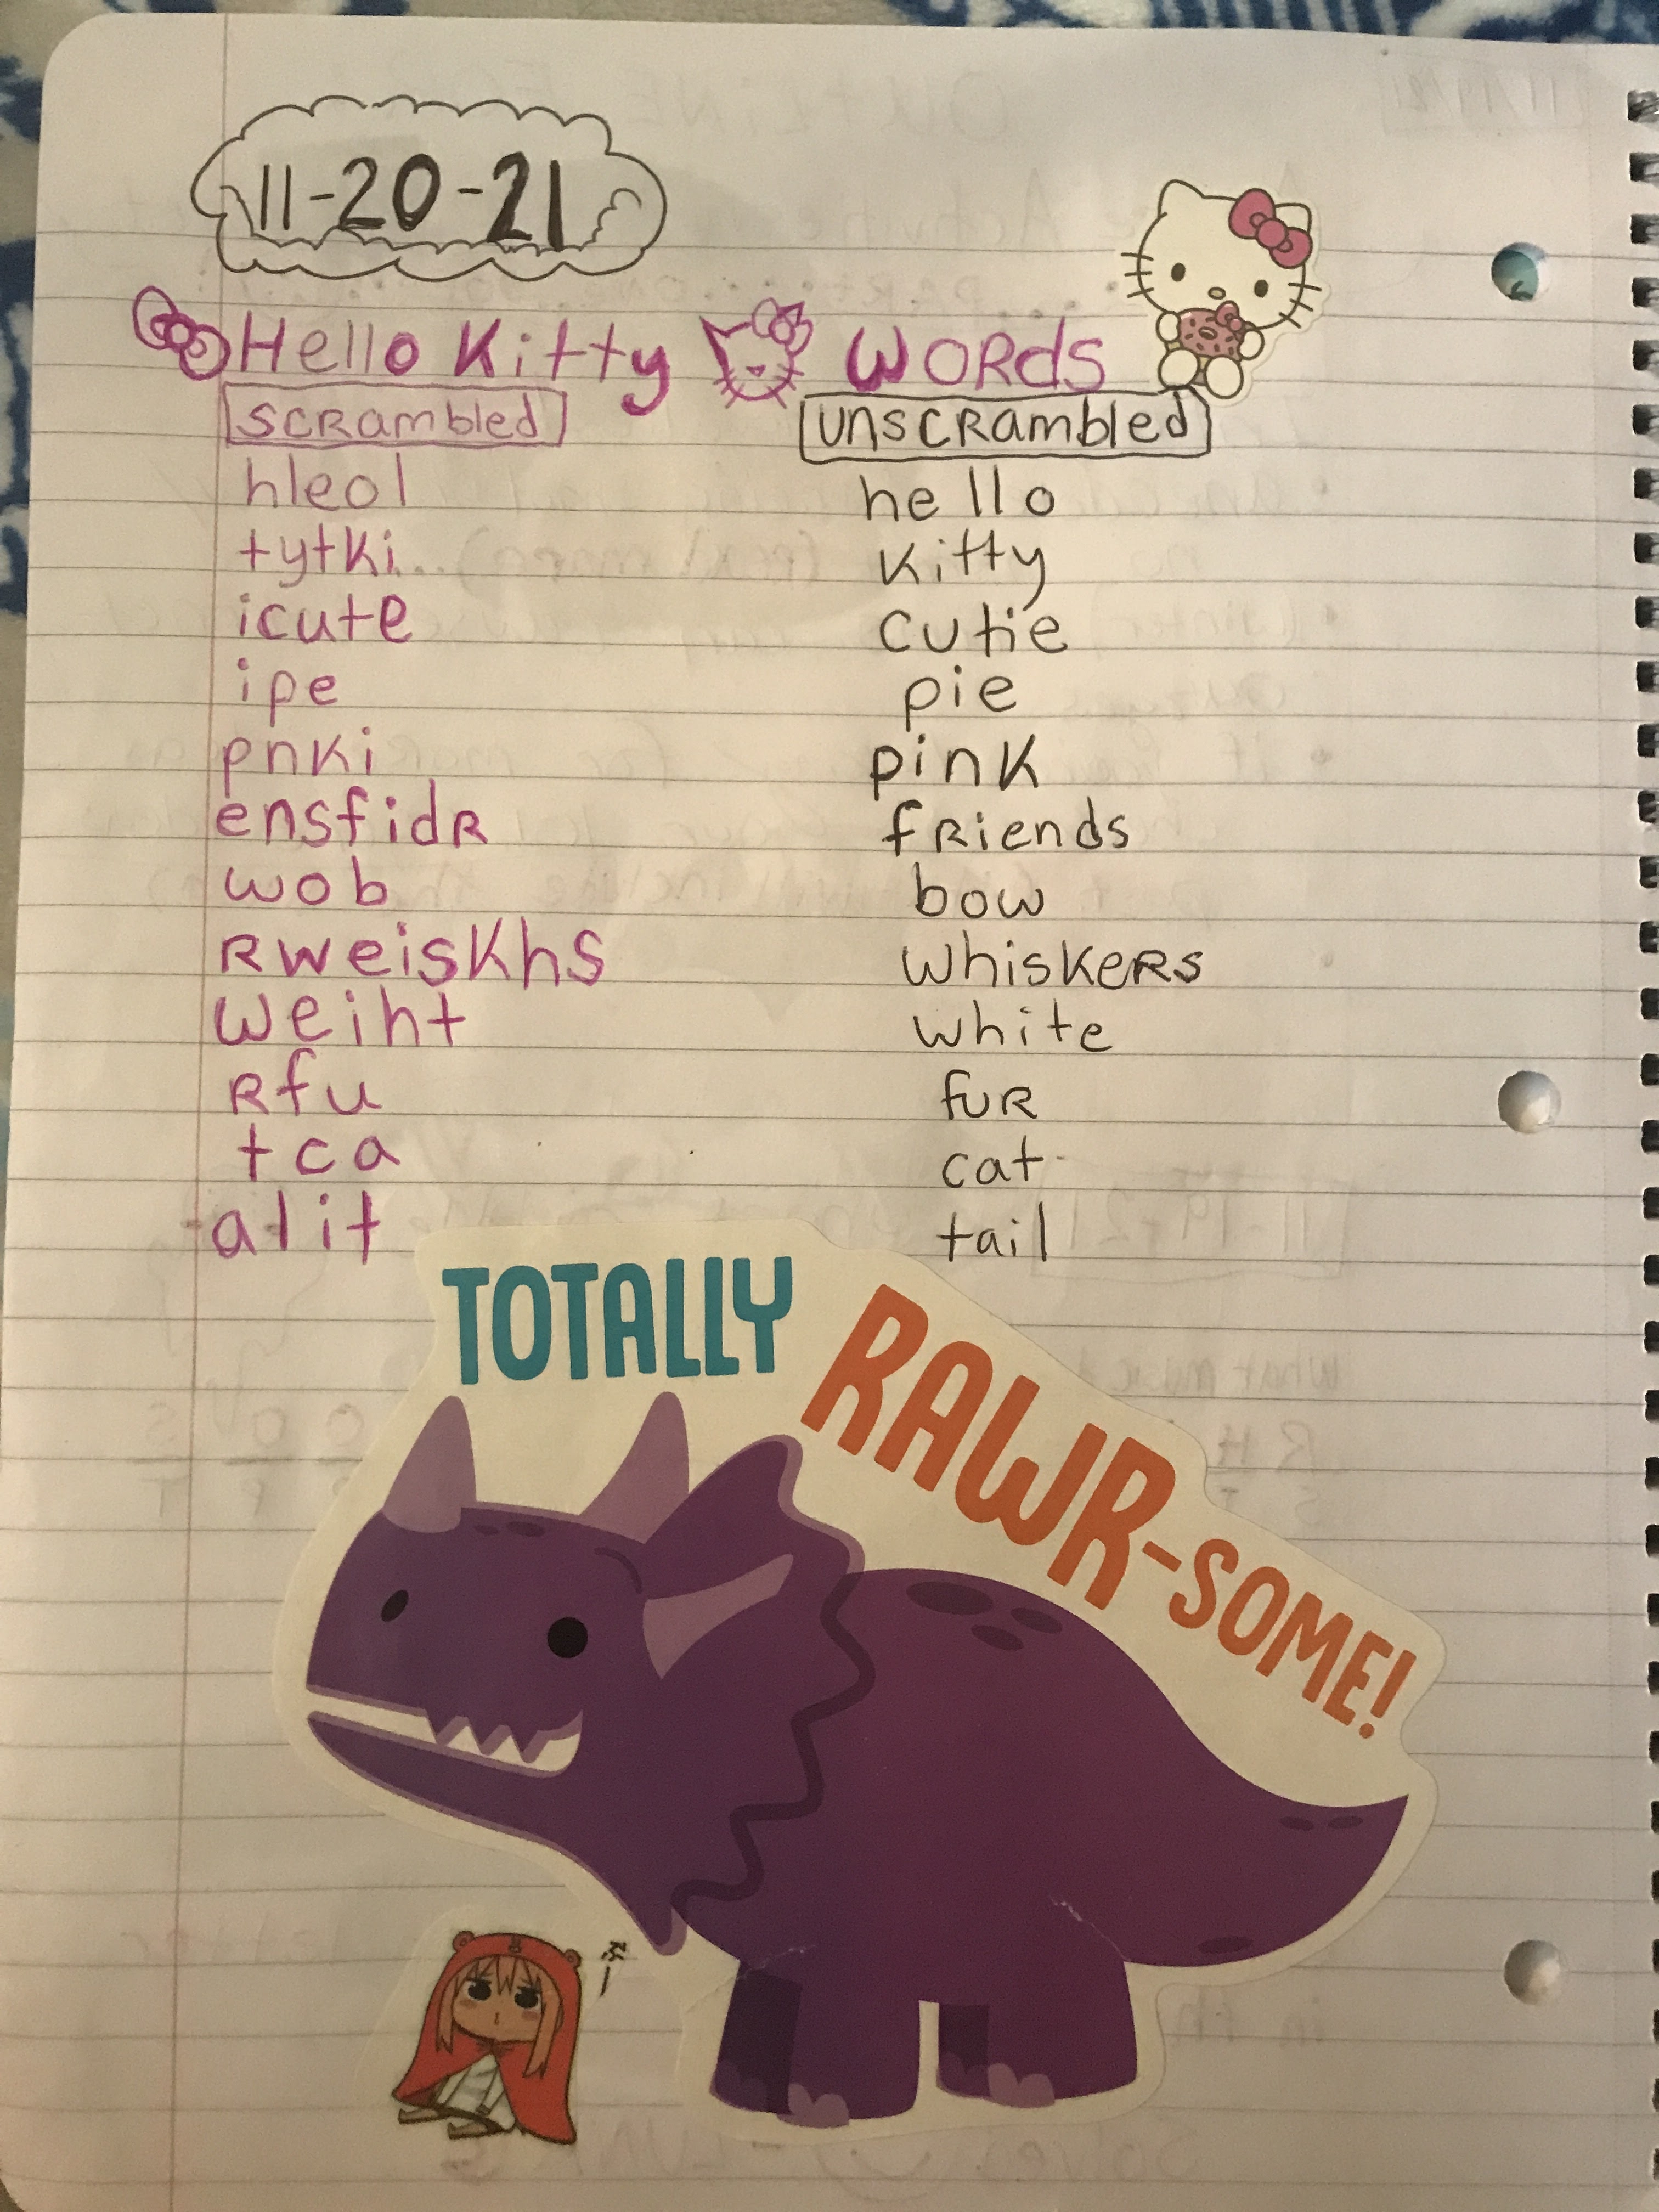 11-20-21
Hello Kitty Words
scrambled unscrambled
hleol hello
tytki kitty
icute cutie
ipe pie
pnki pink
ensfidr friends
wob bow
rweiskhs whiskers
weiht white
rfu fur
tca cat
alit tail
TOTALLY RAWR-SOME!